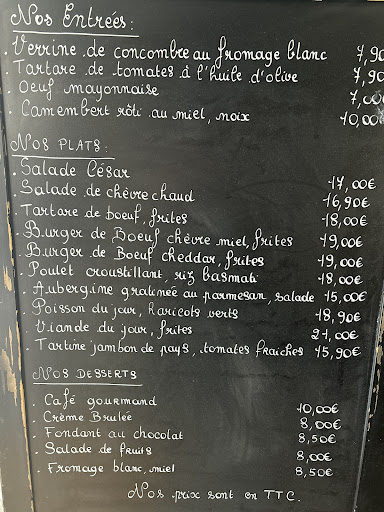 Nos Entrées:
. Verrine de concombre au fromage blanc 7,90
. Tartare de tomates à l'huile d'olive 7,90
. Oeuf mayonnaise 7,00
. Camembert rôti au miel, noix 10,00
Nos PLATS:
. Salade César 17,00€
. Salade de chèvre chaud 16,90€
. Tartare de boeuf, frites 18,00€
. Burger de Boeuf chèvre miel, frites 19,00€
. Burger de Boeuf cheddar, frites 19,00€
. Poulet croustillant, riz basmati 18,00€
. Aubergine gratinée au parmesan, salade 15,00€
. Poisson du jour, haricots verts 18,90€
. Viande du jour, frites 21,00€
. Tartine jambon de pays, tomates fraiches 15,90€
Nos DESSERTS
. Café gourmand 10,00€
. Crème Brulée 8,00€
. Fondant au chocolat 8,50€
. Salade de fruits 8,00€
. Fromage blanc, miel 8,50€
Nos prix sont en TTC.